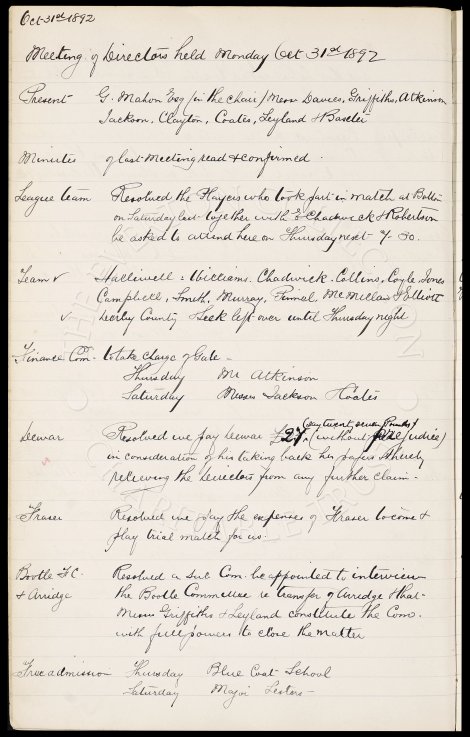 Oct 31st 1892
Meeting of Directors held Monday Oct 31st 1892
Present G. Mahon Esq (in the chair) Messrs Davies, Griffiths, Atkinson
Jackson, Clayton, Coates, Leyland & Baxter
Minutes of last Meeting read & confirmed.
League team Resolved the Players who took part in match at Bolton
on Saturday last together with E Chadwick & Robertson
be asked to attend here on Thursday next 7/30.
Team v Halliwell: Williams. Chadwick. Collins, Coyle, Jones
Campbell, Smith, Murray, McMillan & Elliott
v Derby County & Seek left over until Thursday night
Finance Com. to take charge of Gate -
Thursday Mr Atkinson
Saturday Messrs Jackson & Coates
Dewar Resolved we pay Dewar £27. (say twenty seven Pounds) (without prejudice)
in consideration of his taking back his papers & thereby
relieving the Directors from any further claim.
Fraser Resolved we pay the expenses of Fraser to come &
play trial match for us.
Bootle F.C. Resolved a Sub Com. be appointed to interview
& Arridge the Bootle Committee re transfer of Arridge & that
Messrs Griffiths & Leyland constitute the Com.
with full powers to close the matter
Free admission Thursday Blue Coat School
Saturday Major Lesters -